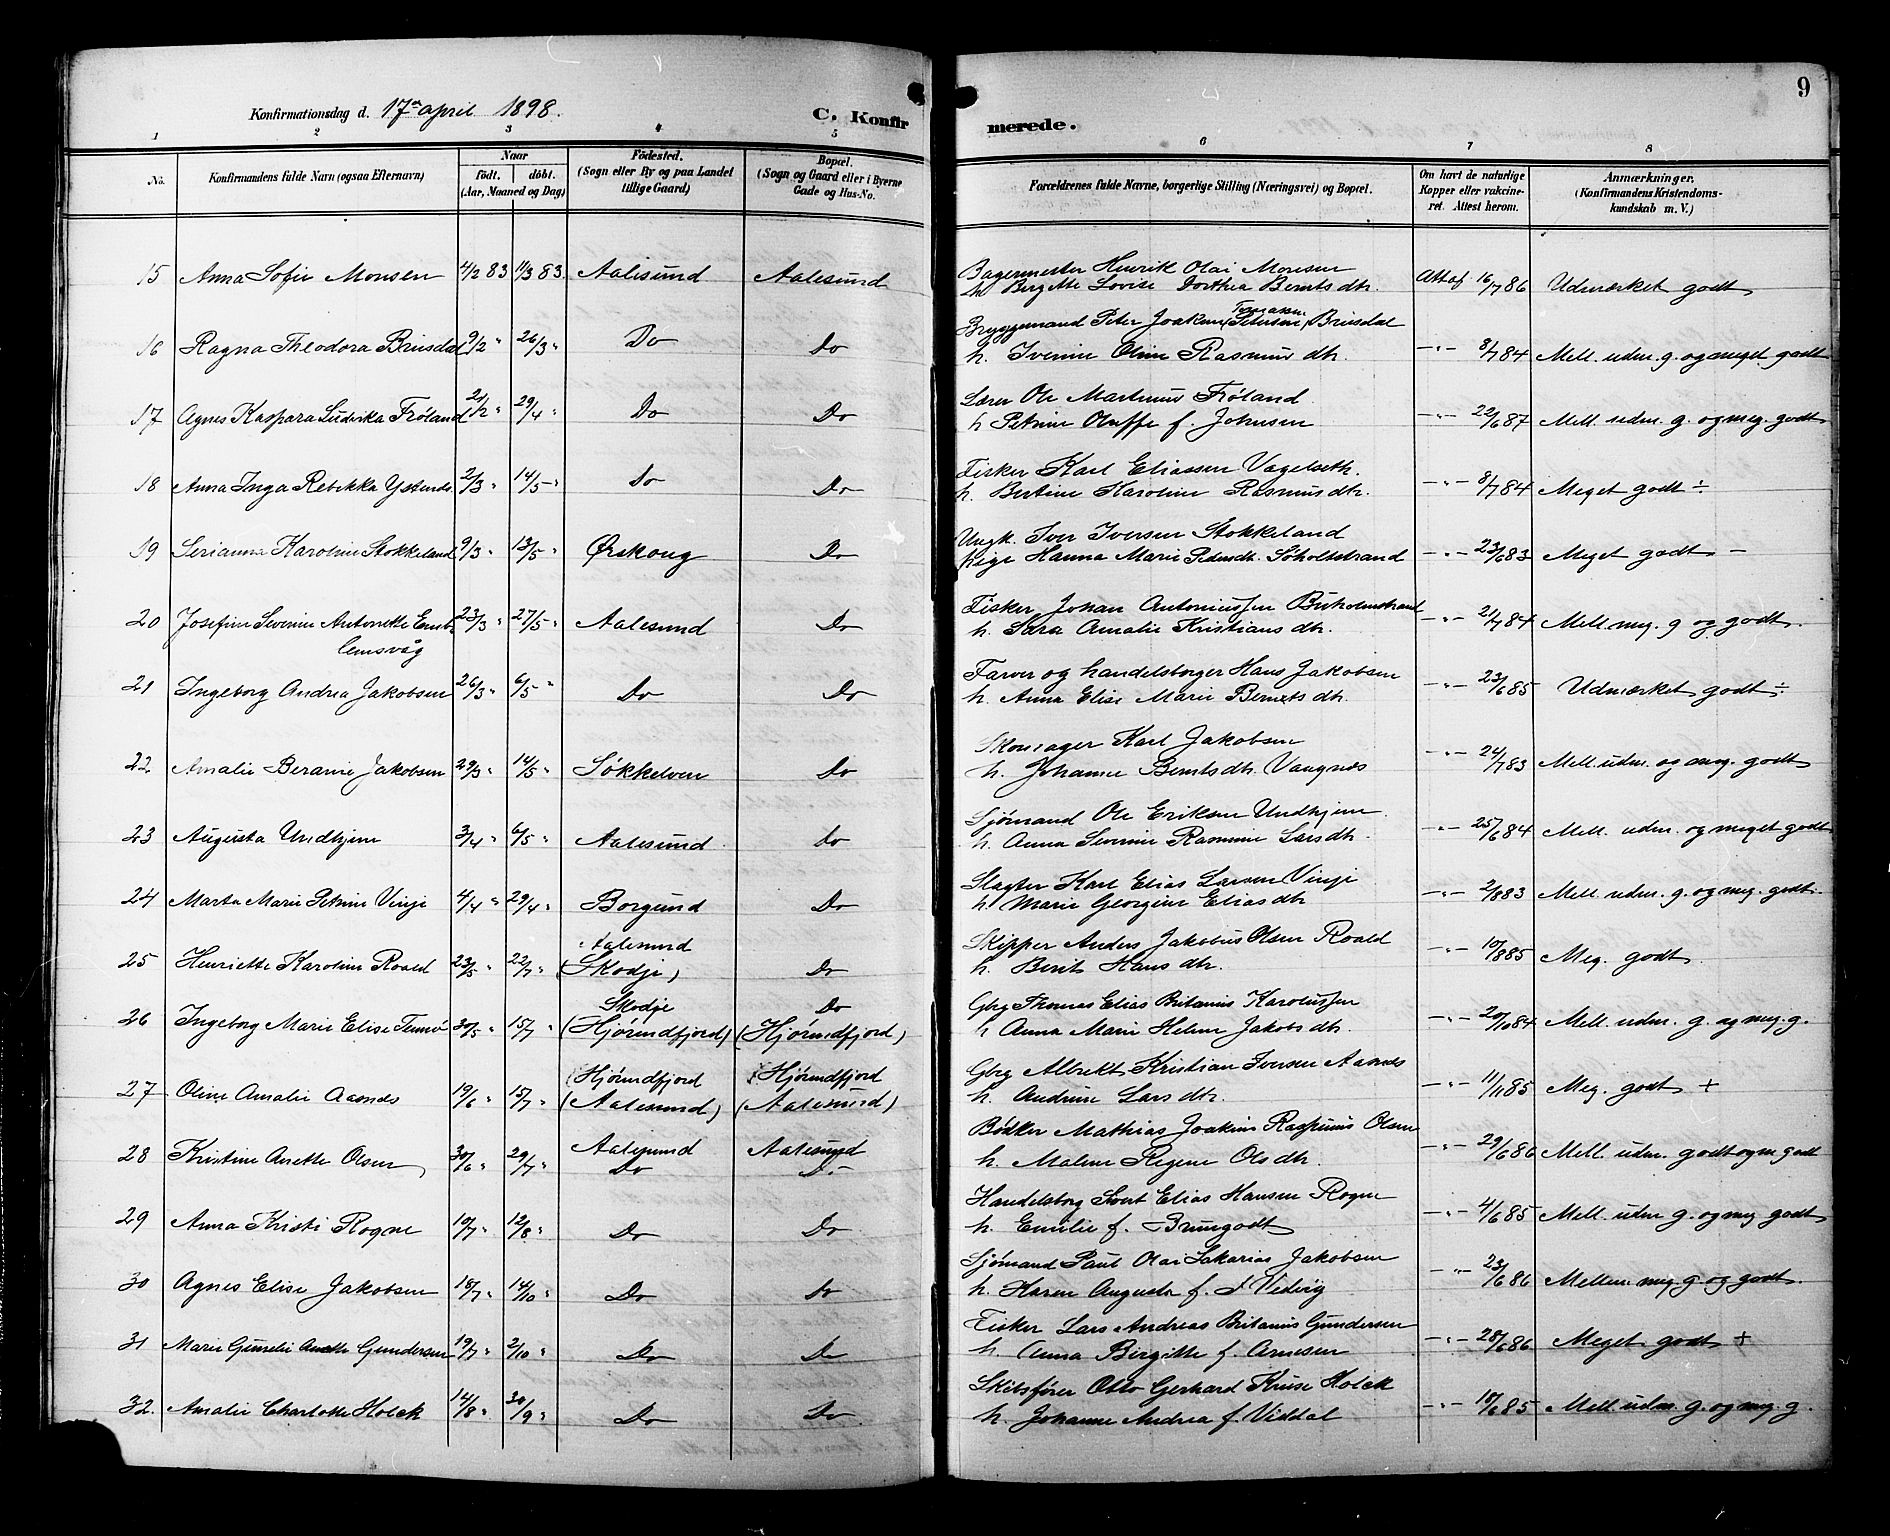 9
Konfirmationsdag d. 17de april 1898.
C. Konfirmerede.
1 2 3 4 5 6 7 8
No. Konfirmandens fulde Navn (ogsaa Efternavn) Naar födt. döbt. (Aar, Maaned og Dag) Födested. (Sogn eller By og paa Landet tillige Gaard) Bopæl. (Sogn og Gaard eller i Byerne Gade og Hus-No. Forældrenes fulde Navne, borgerlige Stilling (Næringsvei) og Bopæl. Om havt de naturlige Kopper eller vakcineret. Attest herom. Anmærkninger. (Konfirmandens Kristendomskundskab m. V.)
15 Anna Sofie Monsen 4/2 83 11/3 83. Aalesund Aalesund Bagermester Henrik Olai Monsen
h. Bergitte Lovise Dorthea Berntsdtr. Att af 16/7 86 Udmærket godt
16 Ragna Theodora Brusdal 9/2 " 26/3 " Do Do Bryggemand Peter Joakim Petersen Brusdal
h. Iverine Oline Rasmusdtr. -"- 8/7 84 Mell. udm. g. og meget godt
17 Agnes Kaspara Ludvika Frøland 21/2 " 29/4 " Do Do Lærer Ole Martinus Frøland
h Petrine Oluffe f. Johnsen -"- 22/6 87 Mell. udm. g. og meg. godt
18 Anna Inga Rebekka 2/3 " 14/5 " Do Do Fisker Karl Eliassen Vegelseth.
h. Bertine Karoline Rasmusdtr. -"- 8/7 84 Meget godt ÷
19 Serianna Karoline Stokkeland 9/3 " 13/5 " Ørskoug Do Ungk. Iver Iversen Stokkeland
Pige Hanna Marie Pedersdtr. Søholtstrand -"- 23/6 83 Meget godt -
20 Josefine Severine Antonette 23/3 " 27/5 " Aalesund Do Fisker Johan Antoniussen Buholmstrand
h. Sara Amalie Kristiansdtr. -"- 21/7 84 Mell. meg. g og godt.
21 Ingeborg Andrea Jakobsen 26/3 " 6/5 " Do Do Farver og handelsborger Hans Jakobsen
h. Anna Elise Marie Berntsdtr. -"- 23/6 85 Udmærket godt ÷
22 Amalie Beranie Jakobsen 29/3 " 14/5 " Søkkelven Do Skomager Karl Jakobsen
h. Johanne Berntsdtr. Vaugnes -"- 24/7 83 Mell. udm. og meg. godt
23 Augusta Undhjem 3/4 " 6/5 " Aalesund Do Sjømand Ole Eriksen Undhjem
h. Anna Severine Rasmine Larsdtr. -"- 25/6 84 Mell. udm. og meget godt
24 Marta Marie Petrine Vinje 4/4 " 29/4 " Borgund Do Slagter Karl Elias Larsen Vinje
h. Marie Georgine Eliasdtr -"- 2/8 83 Mell. udm. g. og meg. godt.
25 Henriette Karoline Roald 23/5 " 22/7 " Aalesund (Skodje) Do Skipper Anders Jakobus Olsen Roald
h. Berit Hansdtr. -"- 10/8 85 Meg. godt.
26 Ingeborg Marie Elise 30/5 " 15/7 " Skodje (Hjørundfjord) Do (Hjørundfjord) Gbrg Thomas Elias Britanus Karolussen
h Anna Marie Helene Jakobsdtr. -"- 20/10 84 Mell. udm. g. og meg. g.
27 Oline Amalie Aasnæs 19/6 " 15/7 " (Hjørundfjord (Aalesund) (Hjørundfjord (Aalesund) Gbrg Albrekt Kristian Iversen Aasnes
h. Andrine Larsdtr. -"- 11/11 85 Meg. godt +
28 Kristine Anette Olsen 30/6 " 29/7 " Aalesund Do Aalesund Do Bødker Mathias Joakim Rasmus Olsen
h. Malene Regine Olsdtr. -"- 29/6 86 Mell. udm. godt og m. godt
29 Anna Kristi Rogne 10/7 " 12/8 " Do Do Handelsborg Sivert Elias Hansen Rogne
h. Emilie f. Brungodt -"- 4/6 85 Mell. udm g. og meg godt
30 Agnes Elise Jakobsen 18/7 " 14/10 " Do Do Sjømand Paul Olai Sakarias Jakobsen
h. Karen Augusta f. -"- 23/6 86 Mellem meg. g og godt.
31 Marie Gunelie Anette Gundersen 19/7 " 2/10 " Do Do Fisker Lars Andreas Britanus Gundersen
h Anna Birgitte f. Arnesen -"- 28/6 86 Meget godt +
32. Amalie Charlotte Holck 14/8 " 30/9 " Do Do Skibsfører Otto Gerhard Kruse Holck
h. Johanne Andrea f. Viddal -"- 18/6 85 Mell. udm. g. og meg. g.